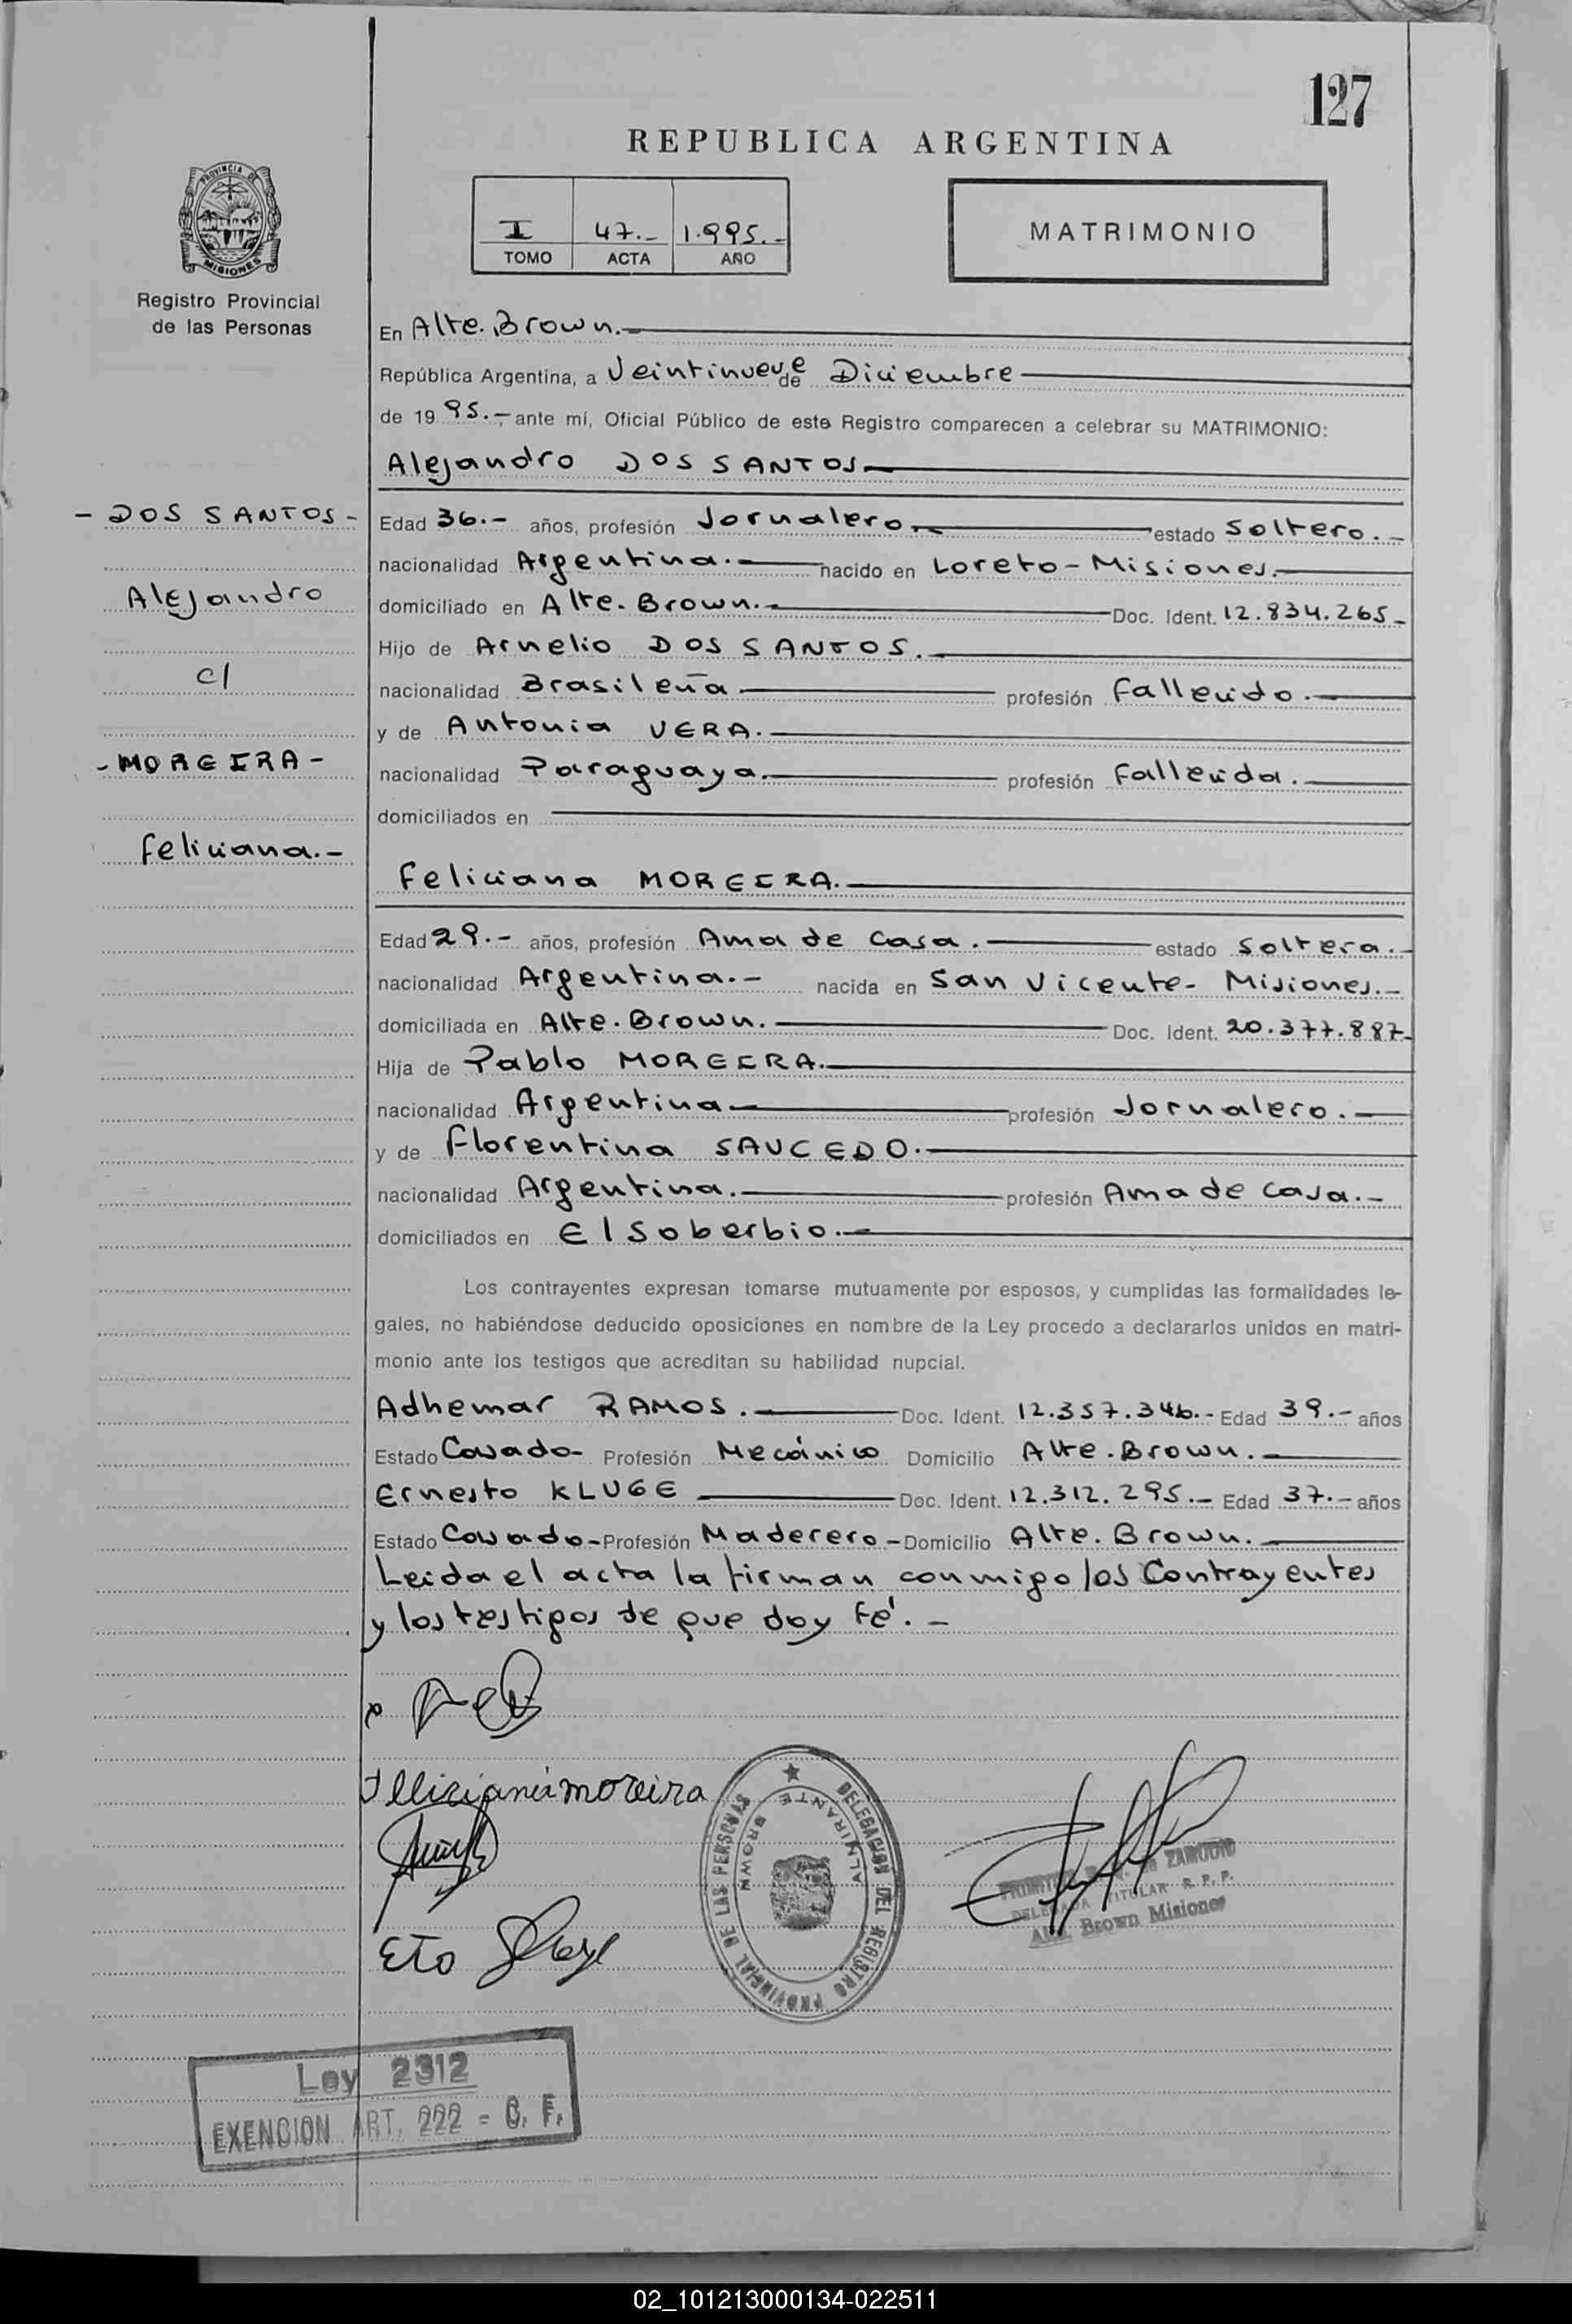 127
REPUBLICA ARGENTINA
PROVINCIA DE
MISIONES
Registro Provincial
de las Personas
I 47.- 1.995.-
TOMO ACTA AÑO
MATRIMONIO
En Alte. Brown.
República Argentina, a Veintinueve de Diciembre
de 19 95.-, ante mí, Oficial Público de este Registro comparecen a celebrar su MATRIMONIO:
Alejandro DOS SANTOS
- DOS SANTOS -
Alejandro
c/
- MOREIRA -
Feliciana.-
Edad 36.- años, profesión Jornalero.- estado Soltero.-
nacionalidad Argentina.- nacido en Loreto - Misiones.-
domiciliado en Alte. Brown.- Doc. Ident. 12.834.265-
Hijo de Arnelio DOS SANTOS.
nacionalidad Brasileña profesión Fallecido.
y de Antonia VERA.
nacionalidad Paraguaya. profesión Fallecida.
domiciliados en
Feliciana MOREIRA.
Edad 29.- años, profesión Ama de Casa. estado Soltera.-
nacionalidad Argentina.- nacida en San Vicente- Misiones.-
domiciliada en Alte. Brown. Doc. Ident. 20.377.887-
Hija de Pablo MOREIRA.
nacionalidad Argentina profesión Jornalero.
y de Florentina SAUCEDO.
nacionalidad Argentina. profesión Ama de Casa.-
domiciliados en El Soberbio.-
Los contrayentes expresan tomarse mutuamente por esposos, y cumplidas las formalidades le-
gales, no habiéndose deducido oposiciones en nombre de la Ley procedo a declararlos unidos en matri-
monio ante los testigos que acreditan su habilidad nupcial.
Adhemar RAMOS. Doc. Ident. 12.357.346.- Edad 39.- años
Estado Casado- Profesión Mecánico Domicilio Alte. Brown.
Ernesto KLUGE Doc. Ident. 12.312.295.- Edad 37.- años
Estado Casado- Profesión Maderero- Domicilio Alte. Brown.
Leida el acta la firman conmigo los Contrayentes
y los testigos de que doy fé.-
moreira
DELEGACION DEL REGISTRO PROVINCIAL DE LAS PERSONAS
ALMIRANTE BROWN
de ZAMUDIO
DELEGADA TITULAR R. P. P.
Alte. Brown Misiones
Eto
Ley 2312
EXENCION ART. 222 = C. F.
02_101213000134-022511